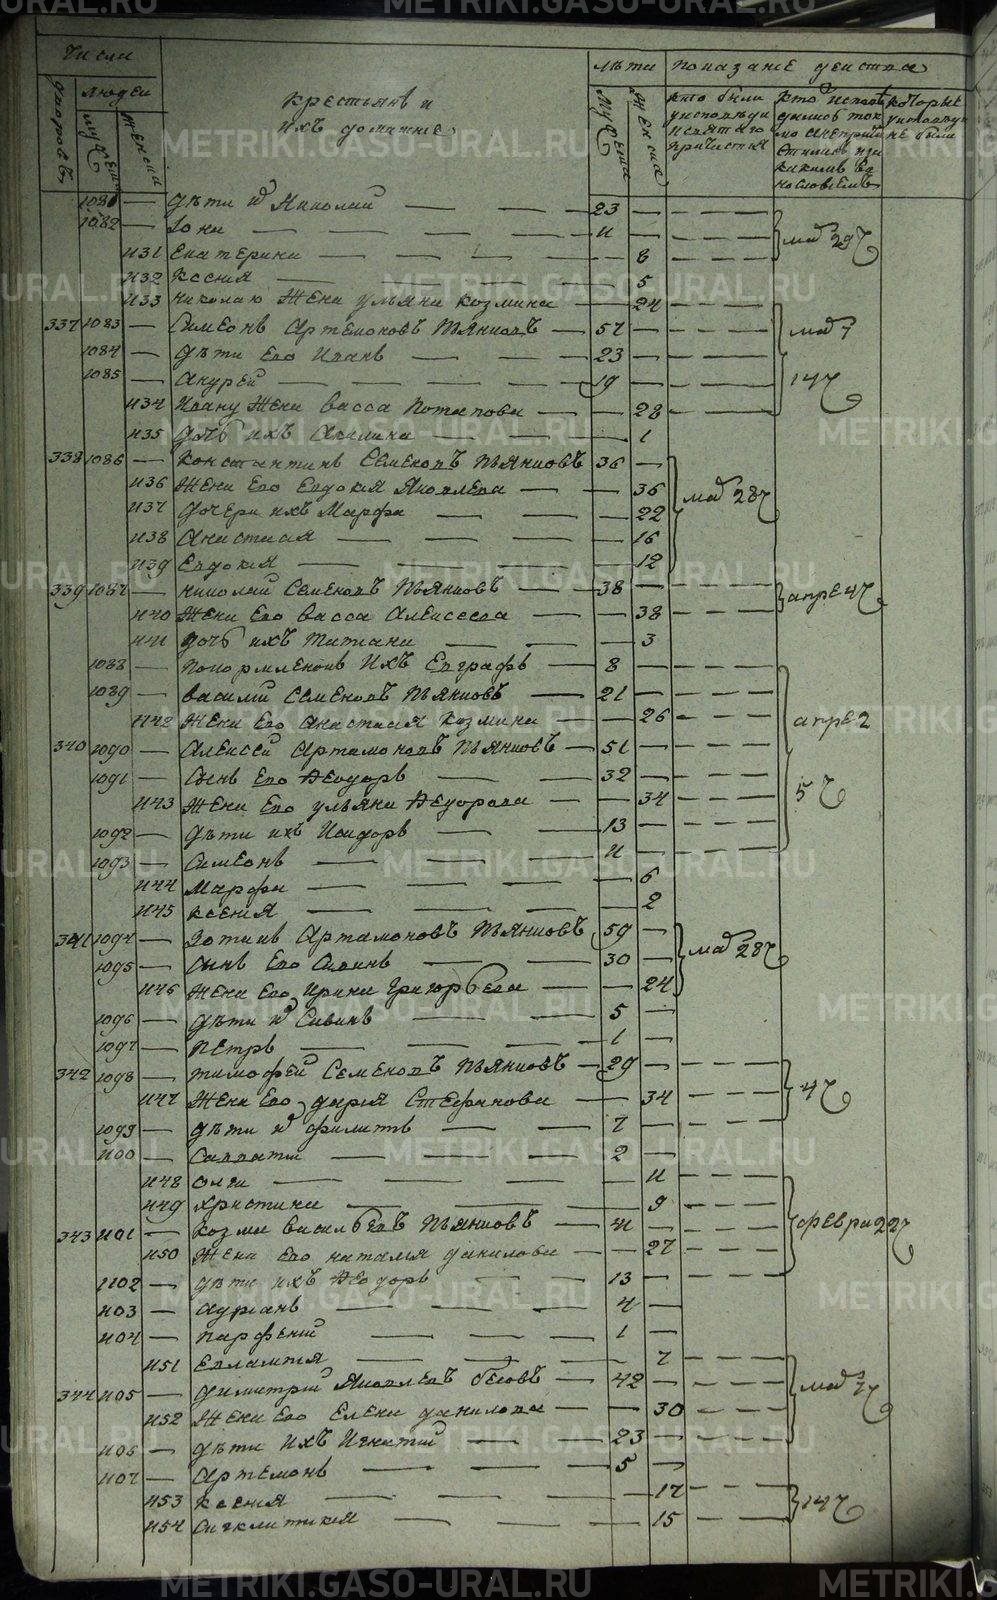 Число Лѣта Показанїе действа
дворовъ людей Крестьянѣ и ихъ домашнїе Мужеска Женска кто были у исповѣди и святаго причастїя кто исповѣдались токмо а непричастились и за каким винословїемъ которые у исповѣди не были
мужеска женска
1081 — Дѣти их Николай — 23 —
1082 — Iона — 11 —
1131 Екатерина — 8 } маїя 29
1132 Ксенїя — 5
1133 Николаю жена Ульяна Козмина — 24
337 1083 — Симеонъ Артемоновъ Пьянковъ — 57 — } маїя 7
1084 — Дѣти Его Иванъ — 23 —
1085 — Андрей — 19 — 14
1134 Ивану жена Васса Потапова — 28
1135 Дочь ихъ Акилина — 1
338 1086 — Константинъ Семеновъ Пьянковъ 36 —
1136 Жена Его Евдокїя Яковлева — 36 } маїя 28
1137 Дочери ихъ Марфа — 22
1138 Анастасїя — 16
1139 Евдокїя — 12
339 1087 — Николай Семеновъ Пьянковъ — 38 — } апре 4
1140 Жена Его Васса Алексеева — 38
1141 Дочь ихъ Татїана — 3
1088 — Покормленникъ Ихъ Евграфъ — 8 —
1089 — Василий Семеновъ Пьянковъ — 21 —
1142 Жена Его Анастасїя Козмина — 26 } апре 2
340 1090 — Алексей Артамоновъ Пьянковъ — 51 —
1091 — Сынъ Его Ѳеодоръ — 32 — 5
1143 Жена Его Ульяна Ѳедорова — 34
1092 — Дѣти ихъ Исидоръ — 13 —
1093 — Симеонъ — 11 —
1144 Марфа — 6
1145 Ксенїя — 2
341 1094 — Зотикъ Артамоновъ Пьянковъ 59 — } маїя 28
1095 — Сынъ Его Савинъ — 30 —
1146 Жена Его Ирина Григорьева — 24
1096 — Дѣти их Савинъ — 5 —
1097 — Петръ — 1 —
342 1098 — Тимофей Семеновъ Пьянковъ — 29 — } 4
1147 Жена Его Дарїя Стефанова — 34
1099 — Дѣти их Филипъ — 7 —
1100 — Савватїй — 2 —
1148 Олга — 11
1149 Христина — 9
343 1101 — Козма Васильевъ Пьянковъ — 41 — } февра 22
1150 Жена Его Наталїя Данилова — 27
1102 — Дѣти ихъ Ѳеодоръ — 13 —
1103 — Адрїанъ — 4 —
1104 — Парфенїй — 1 —
1151 Евлампїя — 7
344 1105 — Димитрий Яковлевъ Бѣсовъ — 42 — } маїя 7
1152 Жена Его Елена Данилова — 30
1106 — Дѣти Ихъ Игнатий — 23 —
1107 — Артемонъ — 5 —
1153 Ксенїя — 17 } 14
1154 Сигклитикїя — 15
METRIKI.GASO-URAL.RU